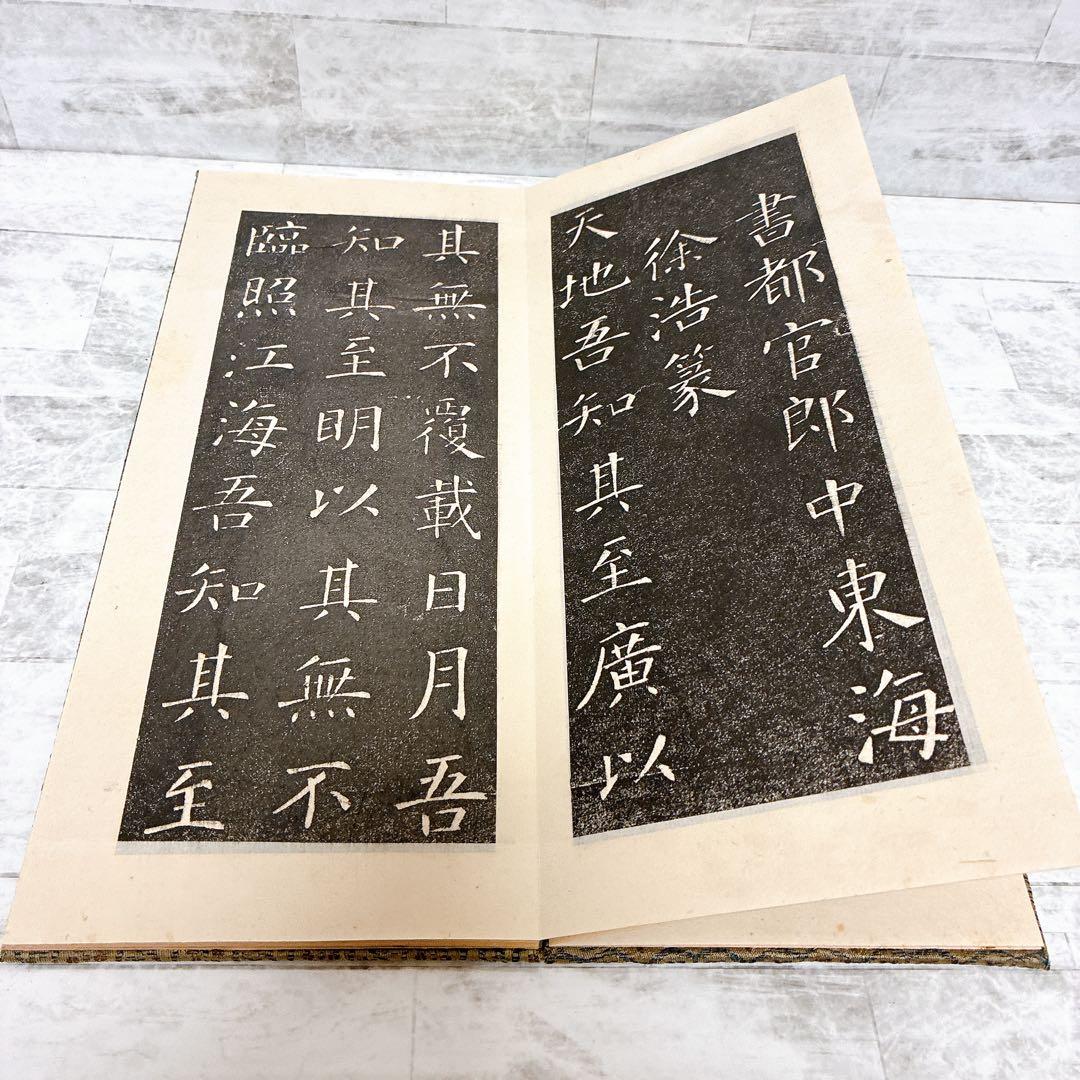 書都官郎中東海
徐浩篆
天地吾知其至廣以
其無不覆載日月吾
知其至明以其無不
臨照江海吾知其至